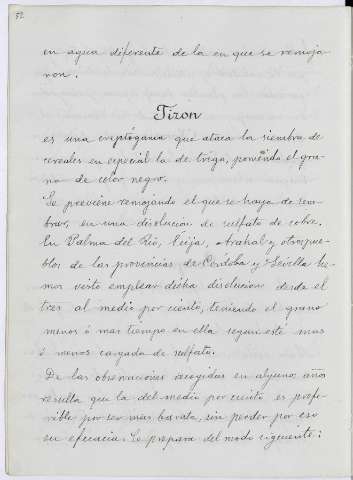 52
en agua diferente de la en que se remoja
ron.
Tizon
es una criptógama que ataca la siembra de
cereales en especial la de trigo, poniendo el gra-
no de color negro.
Se previene remojando el que se haya de sem-
brar, en una disolución de sulfato de cobre.
En Palma del Rio, Ecija, Arahal y otros pue-
blos de las provincias de Cordoba y Sevilla he-
mos visto emplear dicha disolucion desde el
tres al medio por ciento, teniendo el grano
menos ó mas tiempo en ella segun esté mas
ó menos cargada de sulfato.
De las observaciones recogidas en algunos años
resulta que la del medio por ciento es prefe-
rible por ser mas barata, sin perder por eso
su eficacia. Se prepara del modo siguiente: